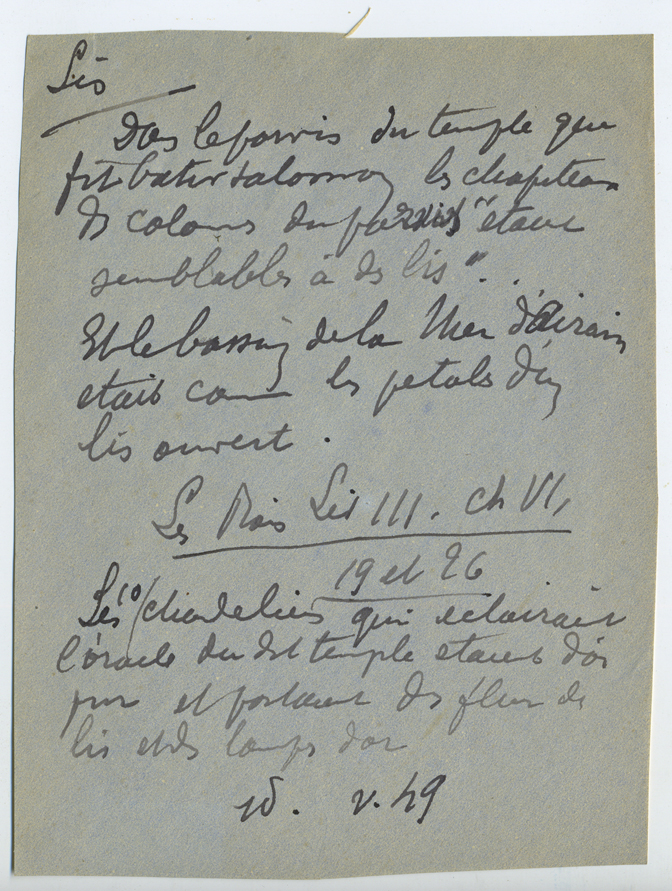 Lis
Das le parvis du temple que
fit batir Salomon les chapiteau
ds colones du parvis "etaient
semblables à ds lis".
Et le bassin de la Mer d'airain
etait comme les petals d'un
lis ouvert.
Les Rois Liv III. ch VI,
19 et 26
Les 10 chandeliers qui eclairaient
l'oracle du dit temple etaient d'or
pur et portaient ds fleur de
lis et ds lamps d'or
id. v. 49